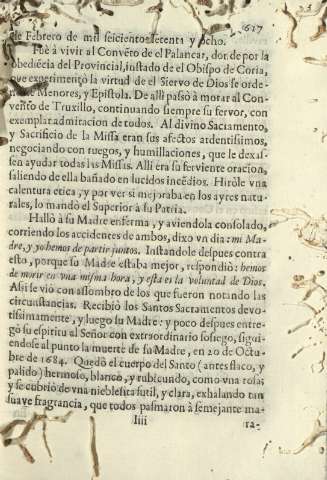 617
de Febrero de mil seicientos setenta y ocho.
Fuè à vivir al Convẽto de el Palancar, donde por la
obediẽcia del Provincial, instado de el Obispo de Coria,
que experimentò la virtud de el Siervo de Dios se orde-
nò de Menores, y Epistola. De alli passò à morar al Con-
vento de Truxillo, continuando siempre su fervor, con
exemplar admiracion de todos. Al divino Sacramento,
y Sacrificio de la Missa eran sus afectos ardentissimos,
negociando con ruegos, y humillaciones, que le dexas-
sen ayudar todas las Missas. Alli era su ferviente oracion,
saliendo de ella bañado en lucidos incẽdios. Hiròle vna
calentura etica, y por ver si mejoraba en los ayres natu-
rales, lo mandò el Superior à su Patria.
Hallò à su Madre enferma, y aviendola consolado,
corriendo los accidentes de ambos, dixo vn dia: mi Ma-
dre, y yo hemos de partir juntos. Instandole despues contra
esto, porque su Madre estaba mejor, respondiò: hemos
de morir en vna misma hora, y esta es la voluntad de Dios.
Assi se viò con assombro de los que fueron notando las
circunstancias. Recibiò los Santos Sacramentos devo-
tissimamente, y luego su Madre: y poco despues entre-
gò su espiritu al Señor con extraordinario sosiego, sigui-
endose al punto la muerte de su Madre, en 20 de Octu-
bre de 1684. Quedò el cuerpo del Santo (antes flaco, y
palido) hermoso, blanco, y rubicundo, como vna rosa,
y se cubriò de vna nieblesita sutil, y clara, exhalando tan
suave fragrancia, que todos pasmaron à semejante ma-
Iiii
ra-